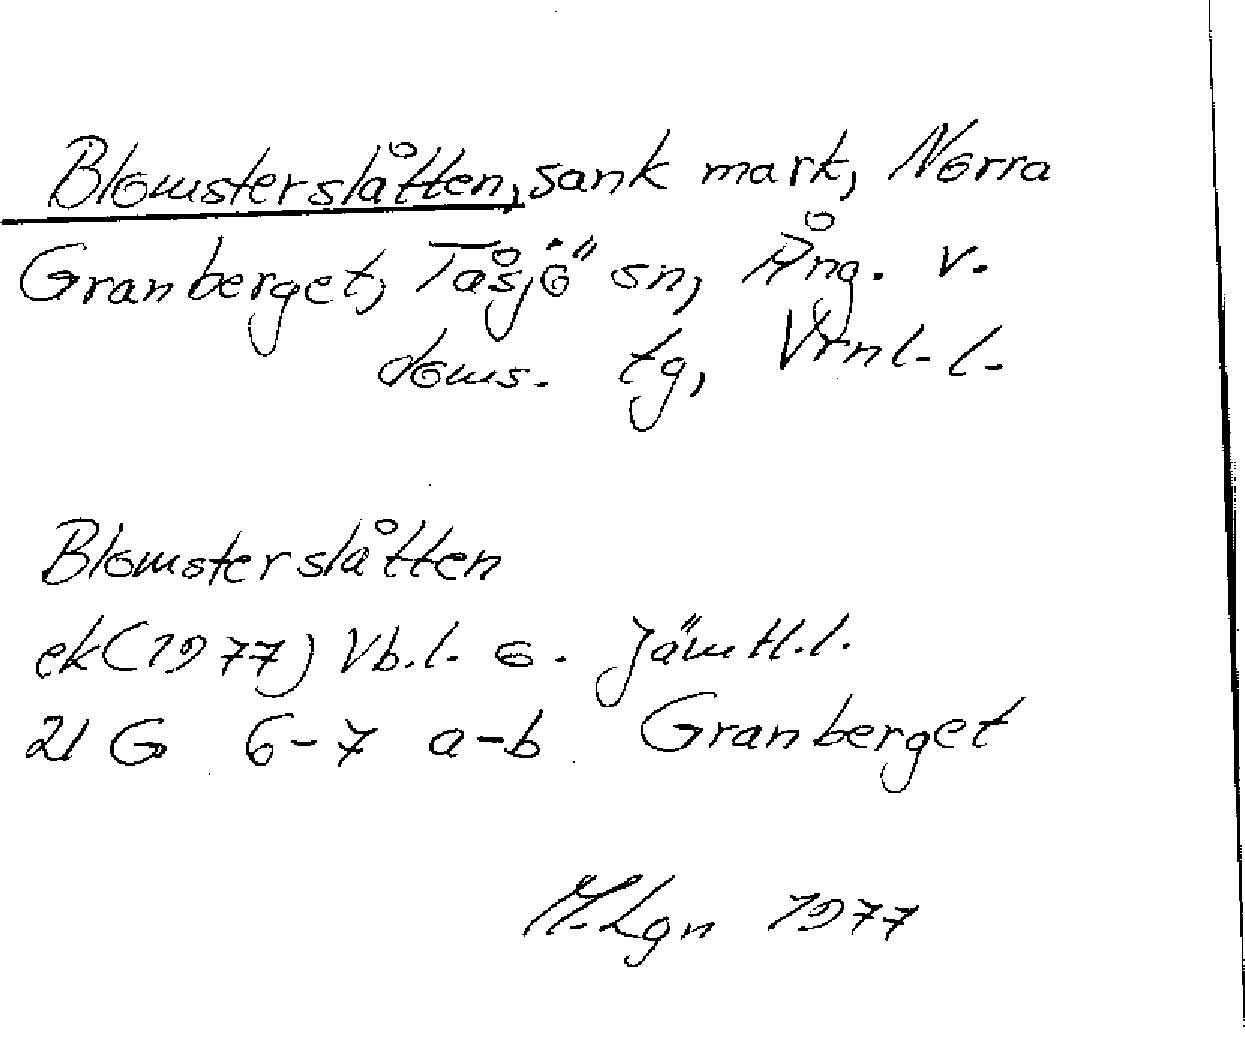 Blomsterslåtten, sank mark, Norra
Granberget, Tåsjö sn, Ång. v.
doms. tg, Vrnl. l.
Blomsterslåtten
ek (1977) Vb. l. o. Jämtl. l.
21 G 6-7 a-b Granberget
M. Lgn 1977